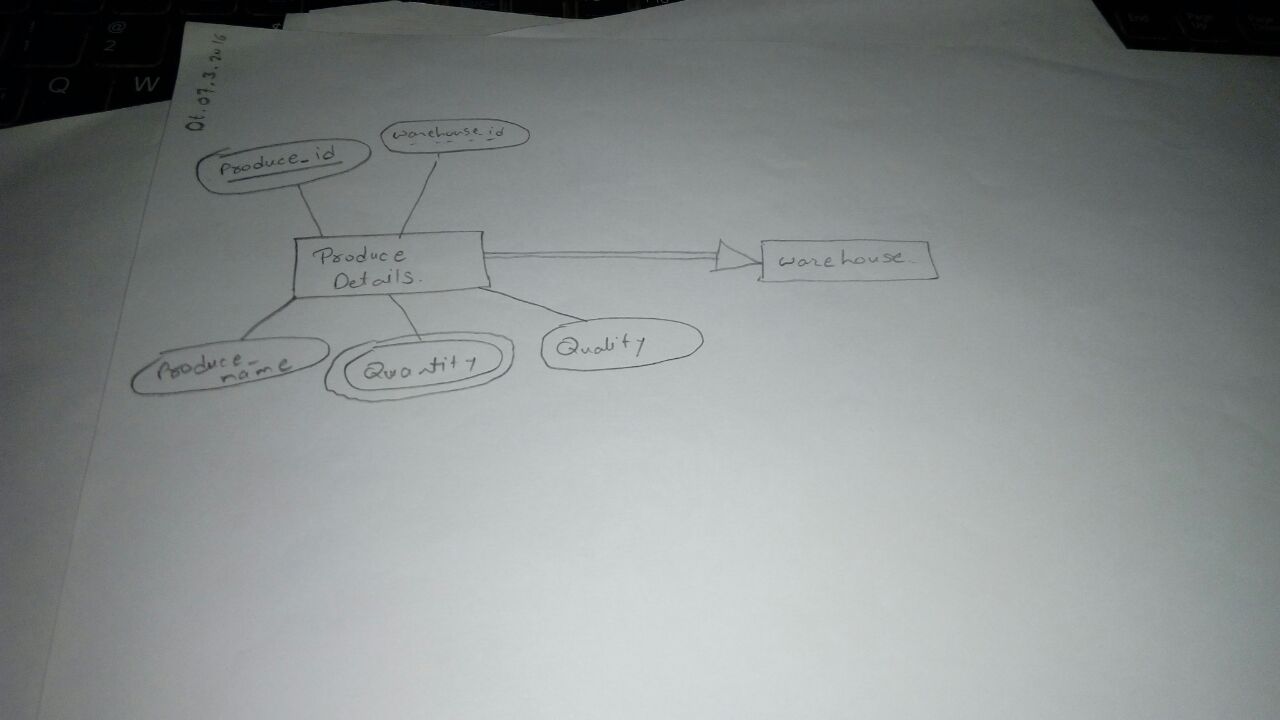 Dt.07.3.2016
Produce_id
warehouse_id
Produce
Details.
warehouse.
Produce_
name
Quantity
Quality
@
2
Q
W
End